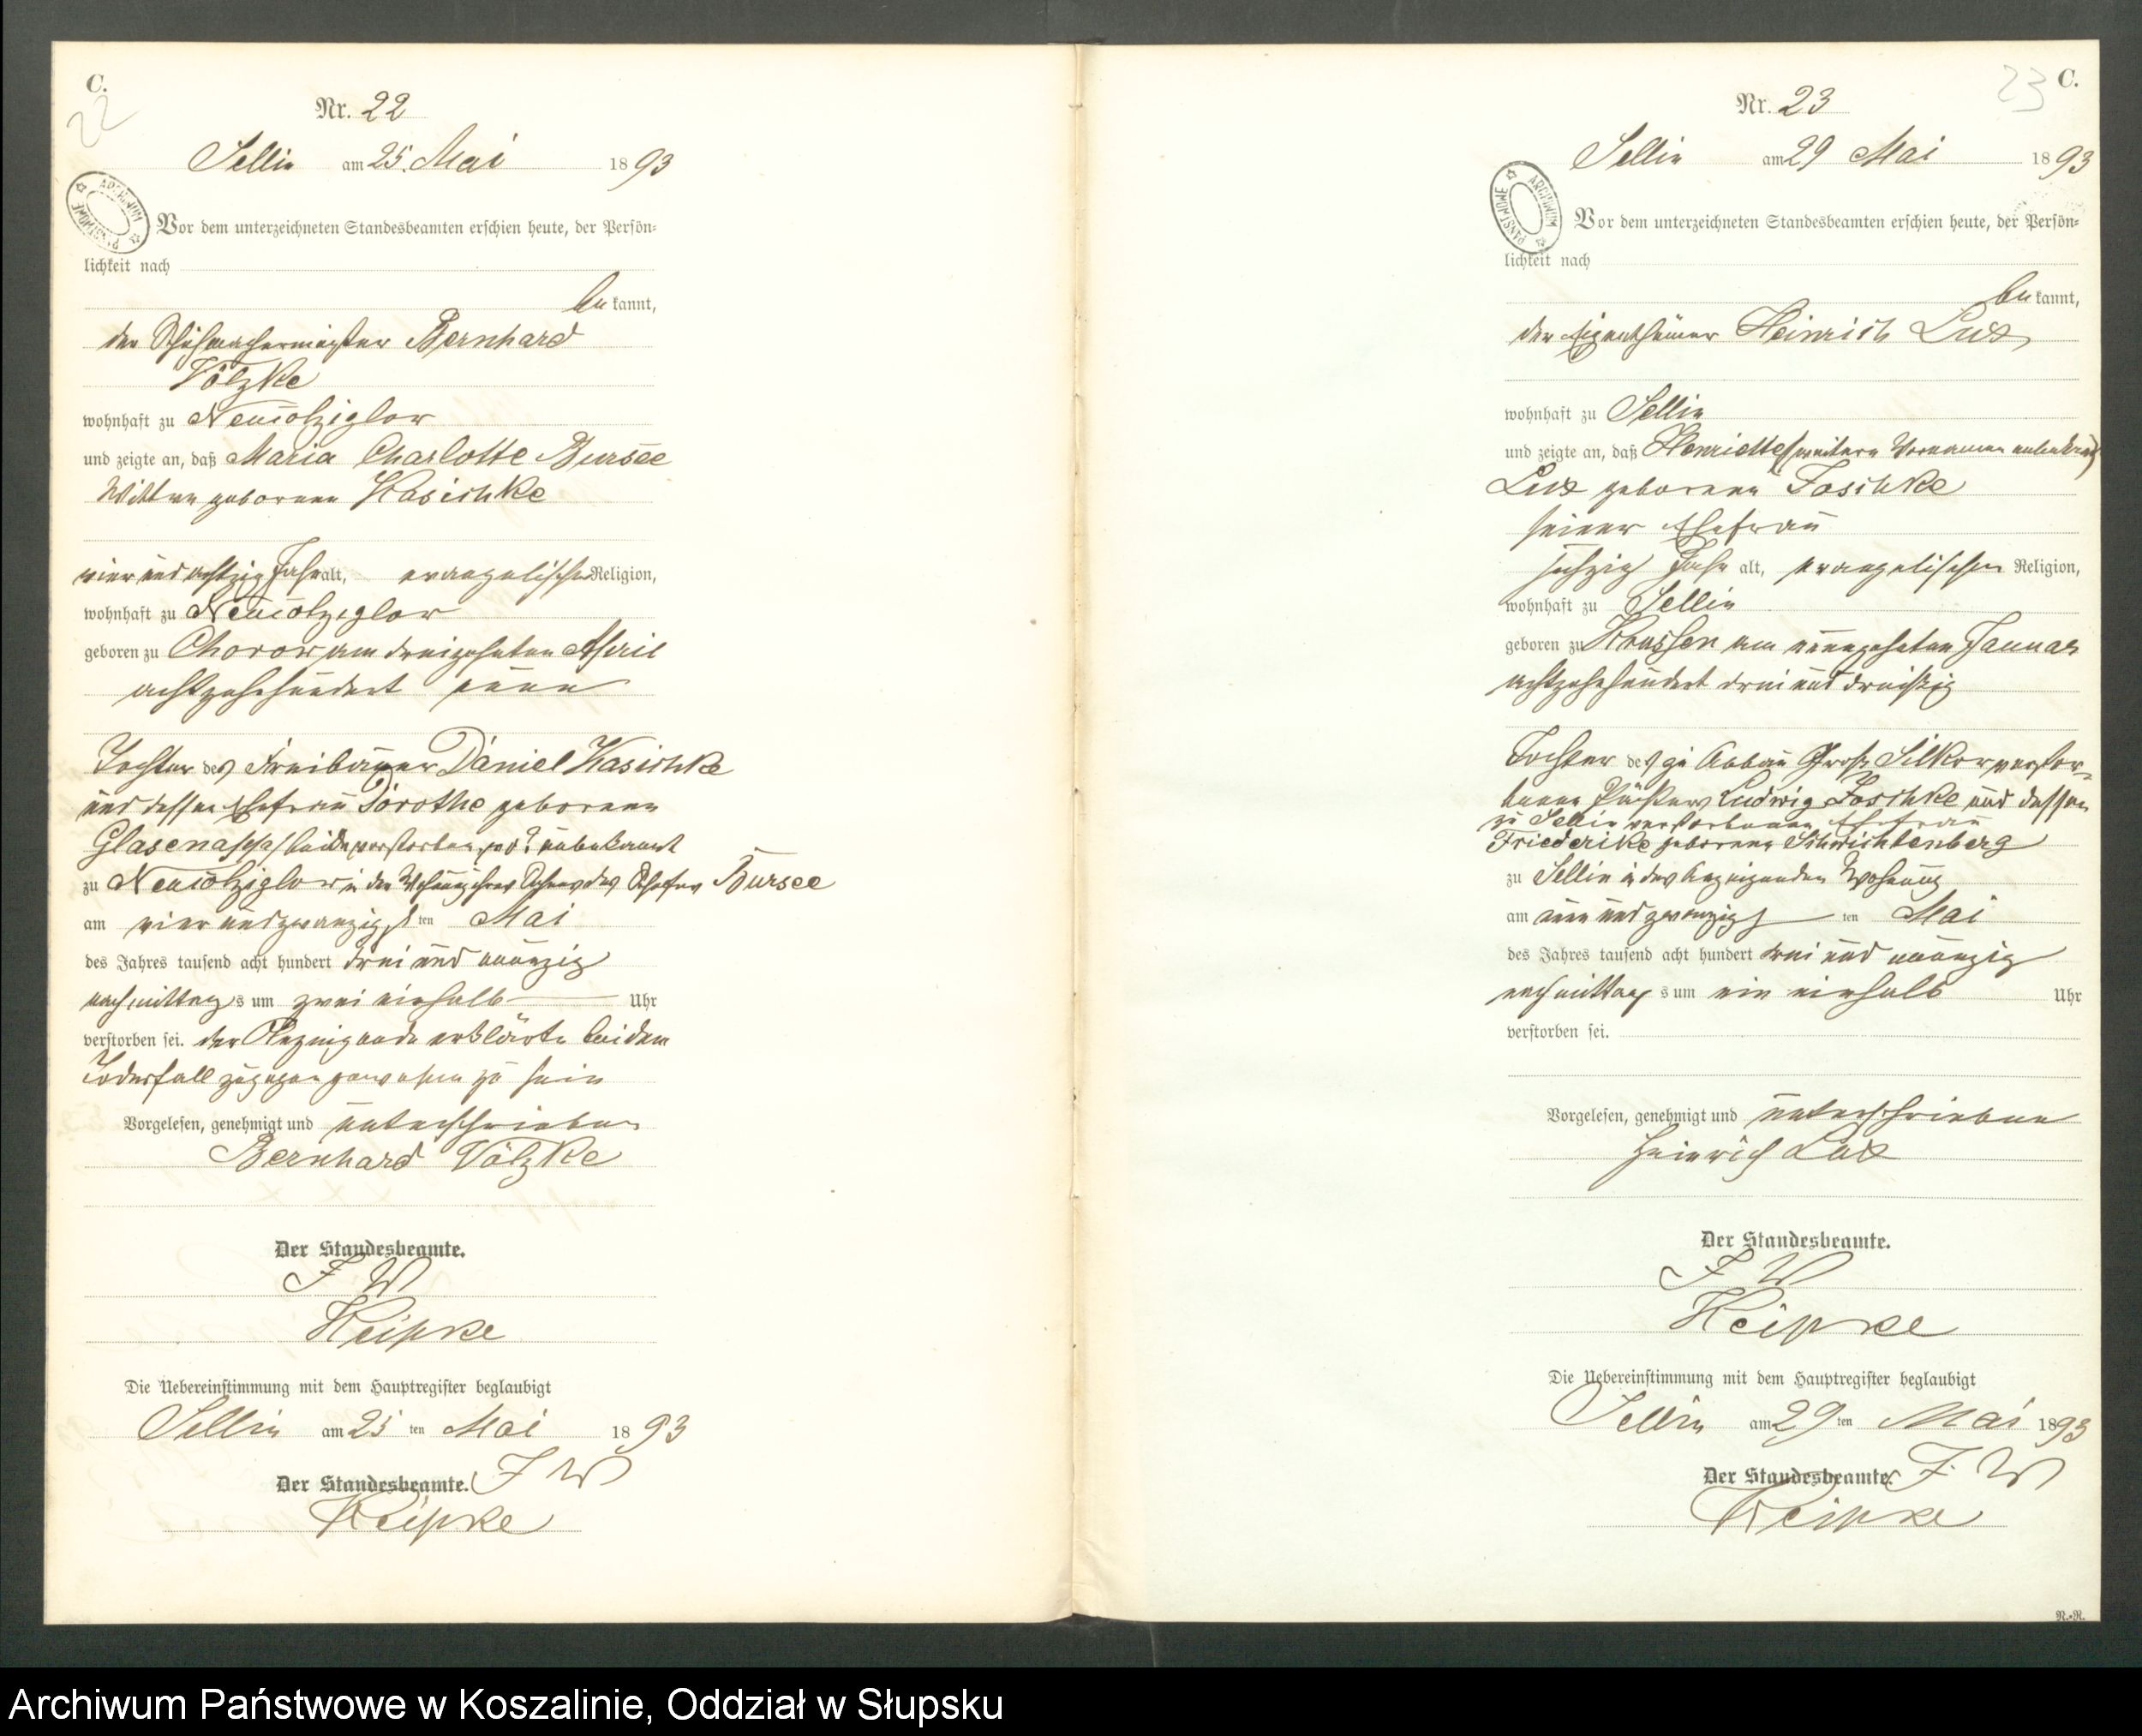 C.
22
Nr. 22
Sellin am 25. Mai 1893
ARCHIWUM PAŃSTWOWE
Vor dem unterzeichneten Standesbeamten erschien heute, der Persön-
lichkeit nach
be kannt,
der Schuhmachermeister Bernhard
Völzke
wohnhaft zu Neucolziglow
und zeigte an, daß Maria Charlotte Bursee
Wittwe geborene Kasischke
vier und achtzig Jahr alt, evangelischer Religion,
wohnhaft zu Neucolziglow
geboren zu Chorow am dreizehnten April
achtzehnhundert neun
Tochter des Freibauer Daniel Kasischke
und dessen Ehefrau Dorothe geborene
Glasenapp beide verstorben, wo? unbekannt
zu Neucolziglow in der Wohnung ihres Sohnes des Bursee
am vier und zwanzigsten Mai
des Jahres tausend acht hundert drei und neunzig
nachmittags um zwei einhalb Uhr
verstorben sei. der Anzeigende erklärte bei dem
Todesfall zugegen gewesen zu sein
Vorgelesen, genehmigt und unterschrieben
Bernhard Völzke
Der Standesbeamte.
F W
Keipke
Die Uebereinstimmung mit dem Hauptregister beglaubigt
Sellin am 25 ten Mai 1893
Der Standesbeamte. F W
Keipke
23 C.
Nr. 23
Sellin am 29 Mai 1893
ARCHIWUM PAŃSTWOWE
Vor dem unterzeichneten Standesbeamten erschien heute, der Persön-
lichkeit nach
be kannt,
der Eigenthümer Heinrich Lux
wohnhaft zu Sellin
und zeigte an, daß Henriette (weitere Vornamen unbekannt)
Lux geborene Joschke
seiner Ehefrau
sechzig Jahr alt, evangelischer Religion,
wohnhaft zu Sellin
geboren zu Krussen am neunzehnten Januar
achtzehnhundert drei und dreißig
Tochter des zu Abbau Groß Silkow verstor-
benen Pächters Ludwig Joschke und dessen
zu Sellin verstorbenen Ehefrau
Friederike geborene Schwichtenberg
zu Sellin in des Anzeigenden Wohnung
am neun und zwanzigsten Mai
des Jahres tausend acht hundert drei und neunzig
nachmittags um ein einhalb Uhr
verstorben sei.
Vorgelesen, genehmigt und unterschrieben
Heinrich Lux
Der Standesbeamte.
F W
Keipke
Die Uebereinstimmung mit dem Hauptregister beglaubigt
Sellin am 29 ten Mai 1893
Der Standesbeamte. F. W
Keipke
N.-R.
Archiwum Państwowe w Koszalinie, Oddział w Słupsku